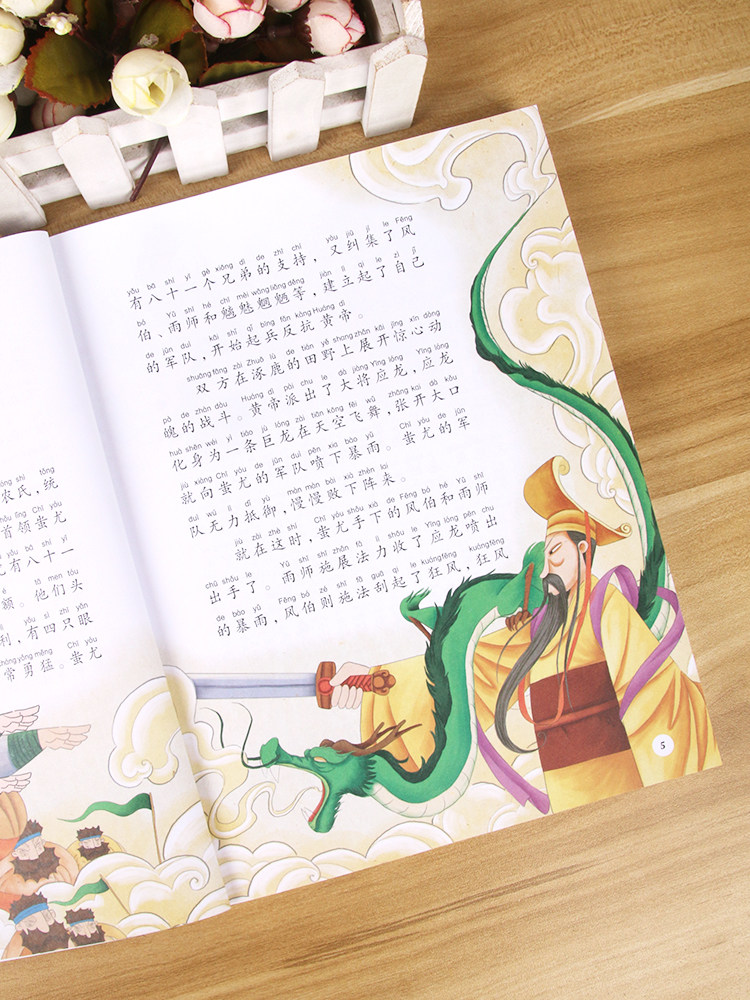 shì tǒng
农氏，统
lǐng Chī yóu
首领蚩尤
yǒu bā shí yī
有八十一
é tā men tóu
额。他们头
yǒu sì zhī yǎn
利，有四只眼
yǒng měng Chī yóu
常勇猛。蚩尤
yǒu bā shí yī gè xiōng dì de zhī chí yòu jiū jí le Fēng
有八十一个兄弟的支持，又纠集了风
bó Yǔ shī hé chī mèi wǎng liǎng děng jiàn lì qǐ le zì jǐ
伯、雨师和魑魅魍魉等，建立起了自己
de jūn duì kāi shǐ qǐ bīng fǎn kàng Huáng dì
的军队，开始起兵反抗黄帝。
shuāng fāng zài Zhuō lù de tián yě shang zhǎn kāi jīng xīn dòng
双方在涿鹿的田野上展开惊心动
pò de zhàn dòu Huáng dì pài chū le dà jiàng Yìng lóng Yìng lóng
魄的战斗。黄帝派出了大将应龙，应龙
huà shēn wéi yì tiáo jù lóng zài tiān kōng fēi wǔ zhāng kāi dà kǒu
化身为一条巨龙在天空飞舞，张开大口
jiù xiàng Chī yóu de jūn duì pēn xià bào yǔ Chī yóu de jūn
就向蚩尤的军队喷下暴雨。蚩尤的军
duì wú lì dǐ yù màn màn bài xià zhèn lai
队无力抵御，慢慢败下阵来。
jiù zài zhè shí Chī yóu shǒu xià de Fēng bó hé Yǔ shī
就在这时，蚩尤手下的风伯和雨师
chū shǒu le Yǔ shī shī zhǎn fǎ lì shōu le Yìng lóng pēn chū
出手了。雨师施展法力收了应龙喷出
de bào yǔ Fēng bó zé shī fǎ guā qǐ le kuáng fēng kuáng fēng
的暴雨，风伯则施法刮起了狂风，狂风
5